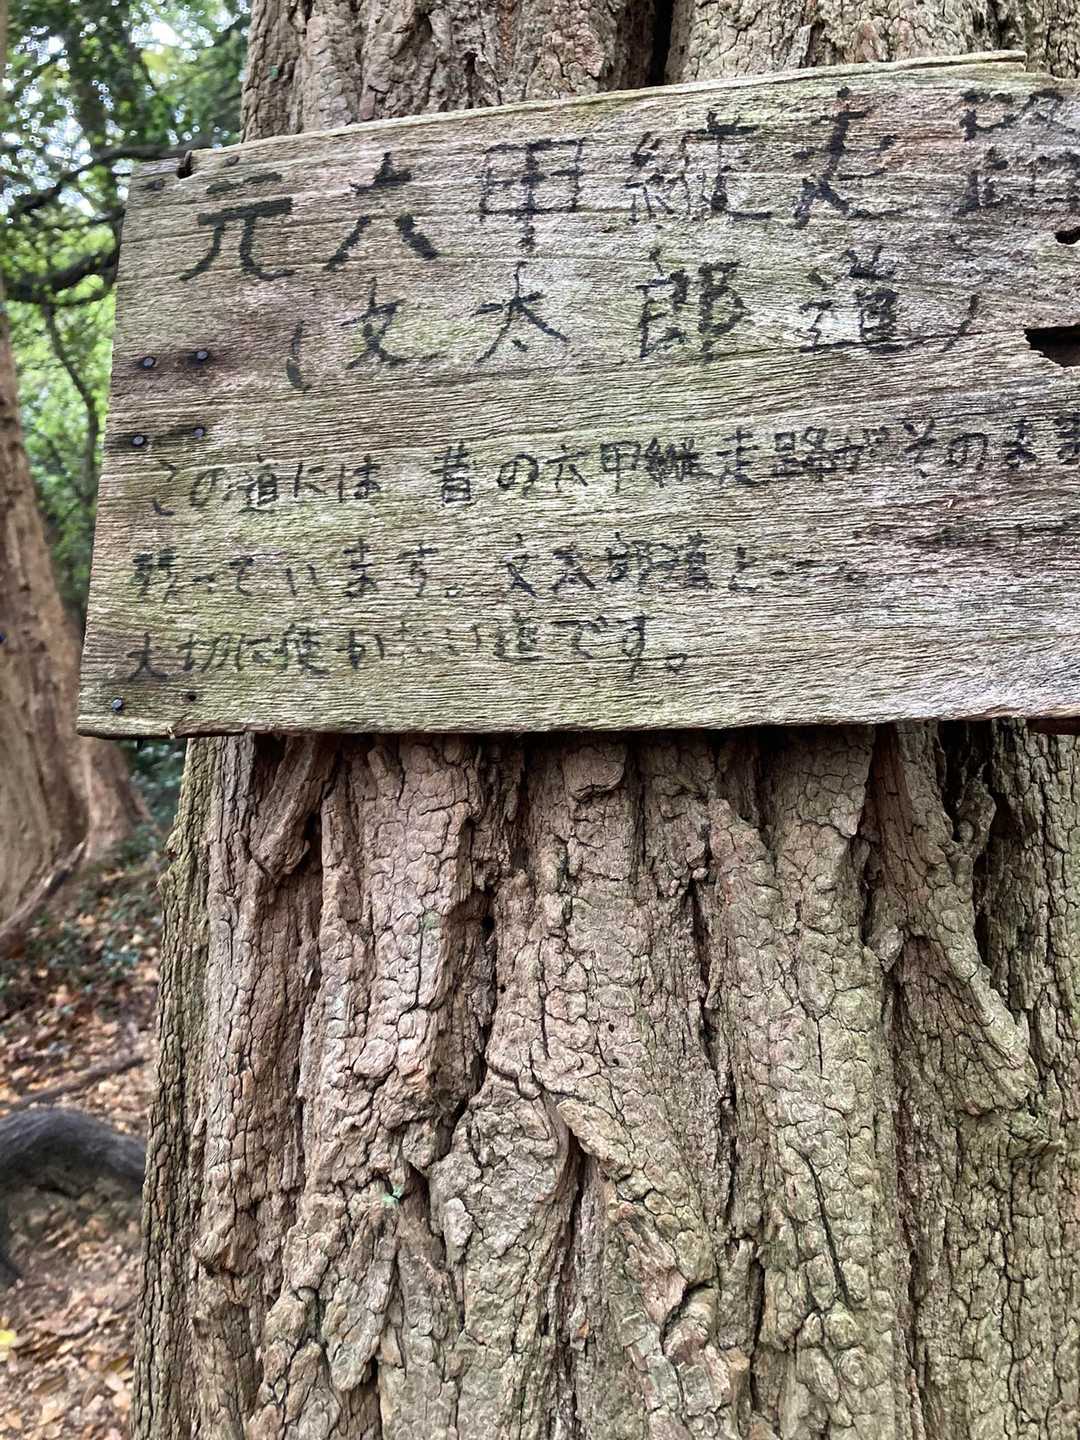 元六甲縦走路
(文太郎道)
この道には昔の六甲縦走路がそのまま
残っています。文太郎道と
大切に使いたい道です。